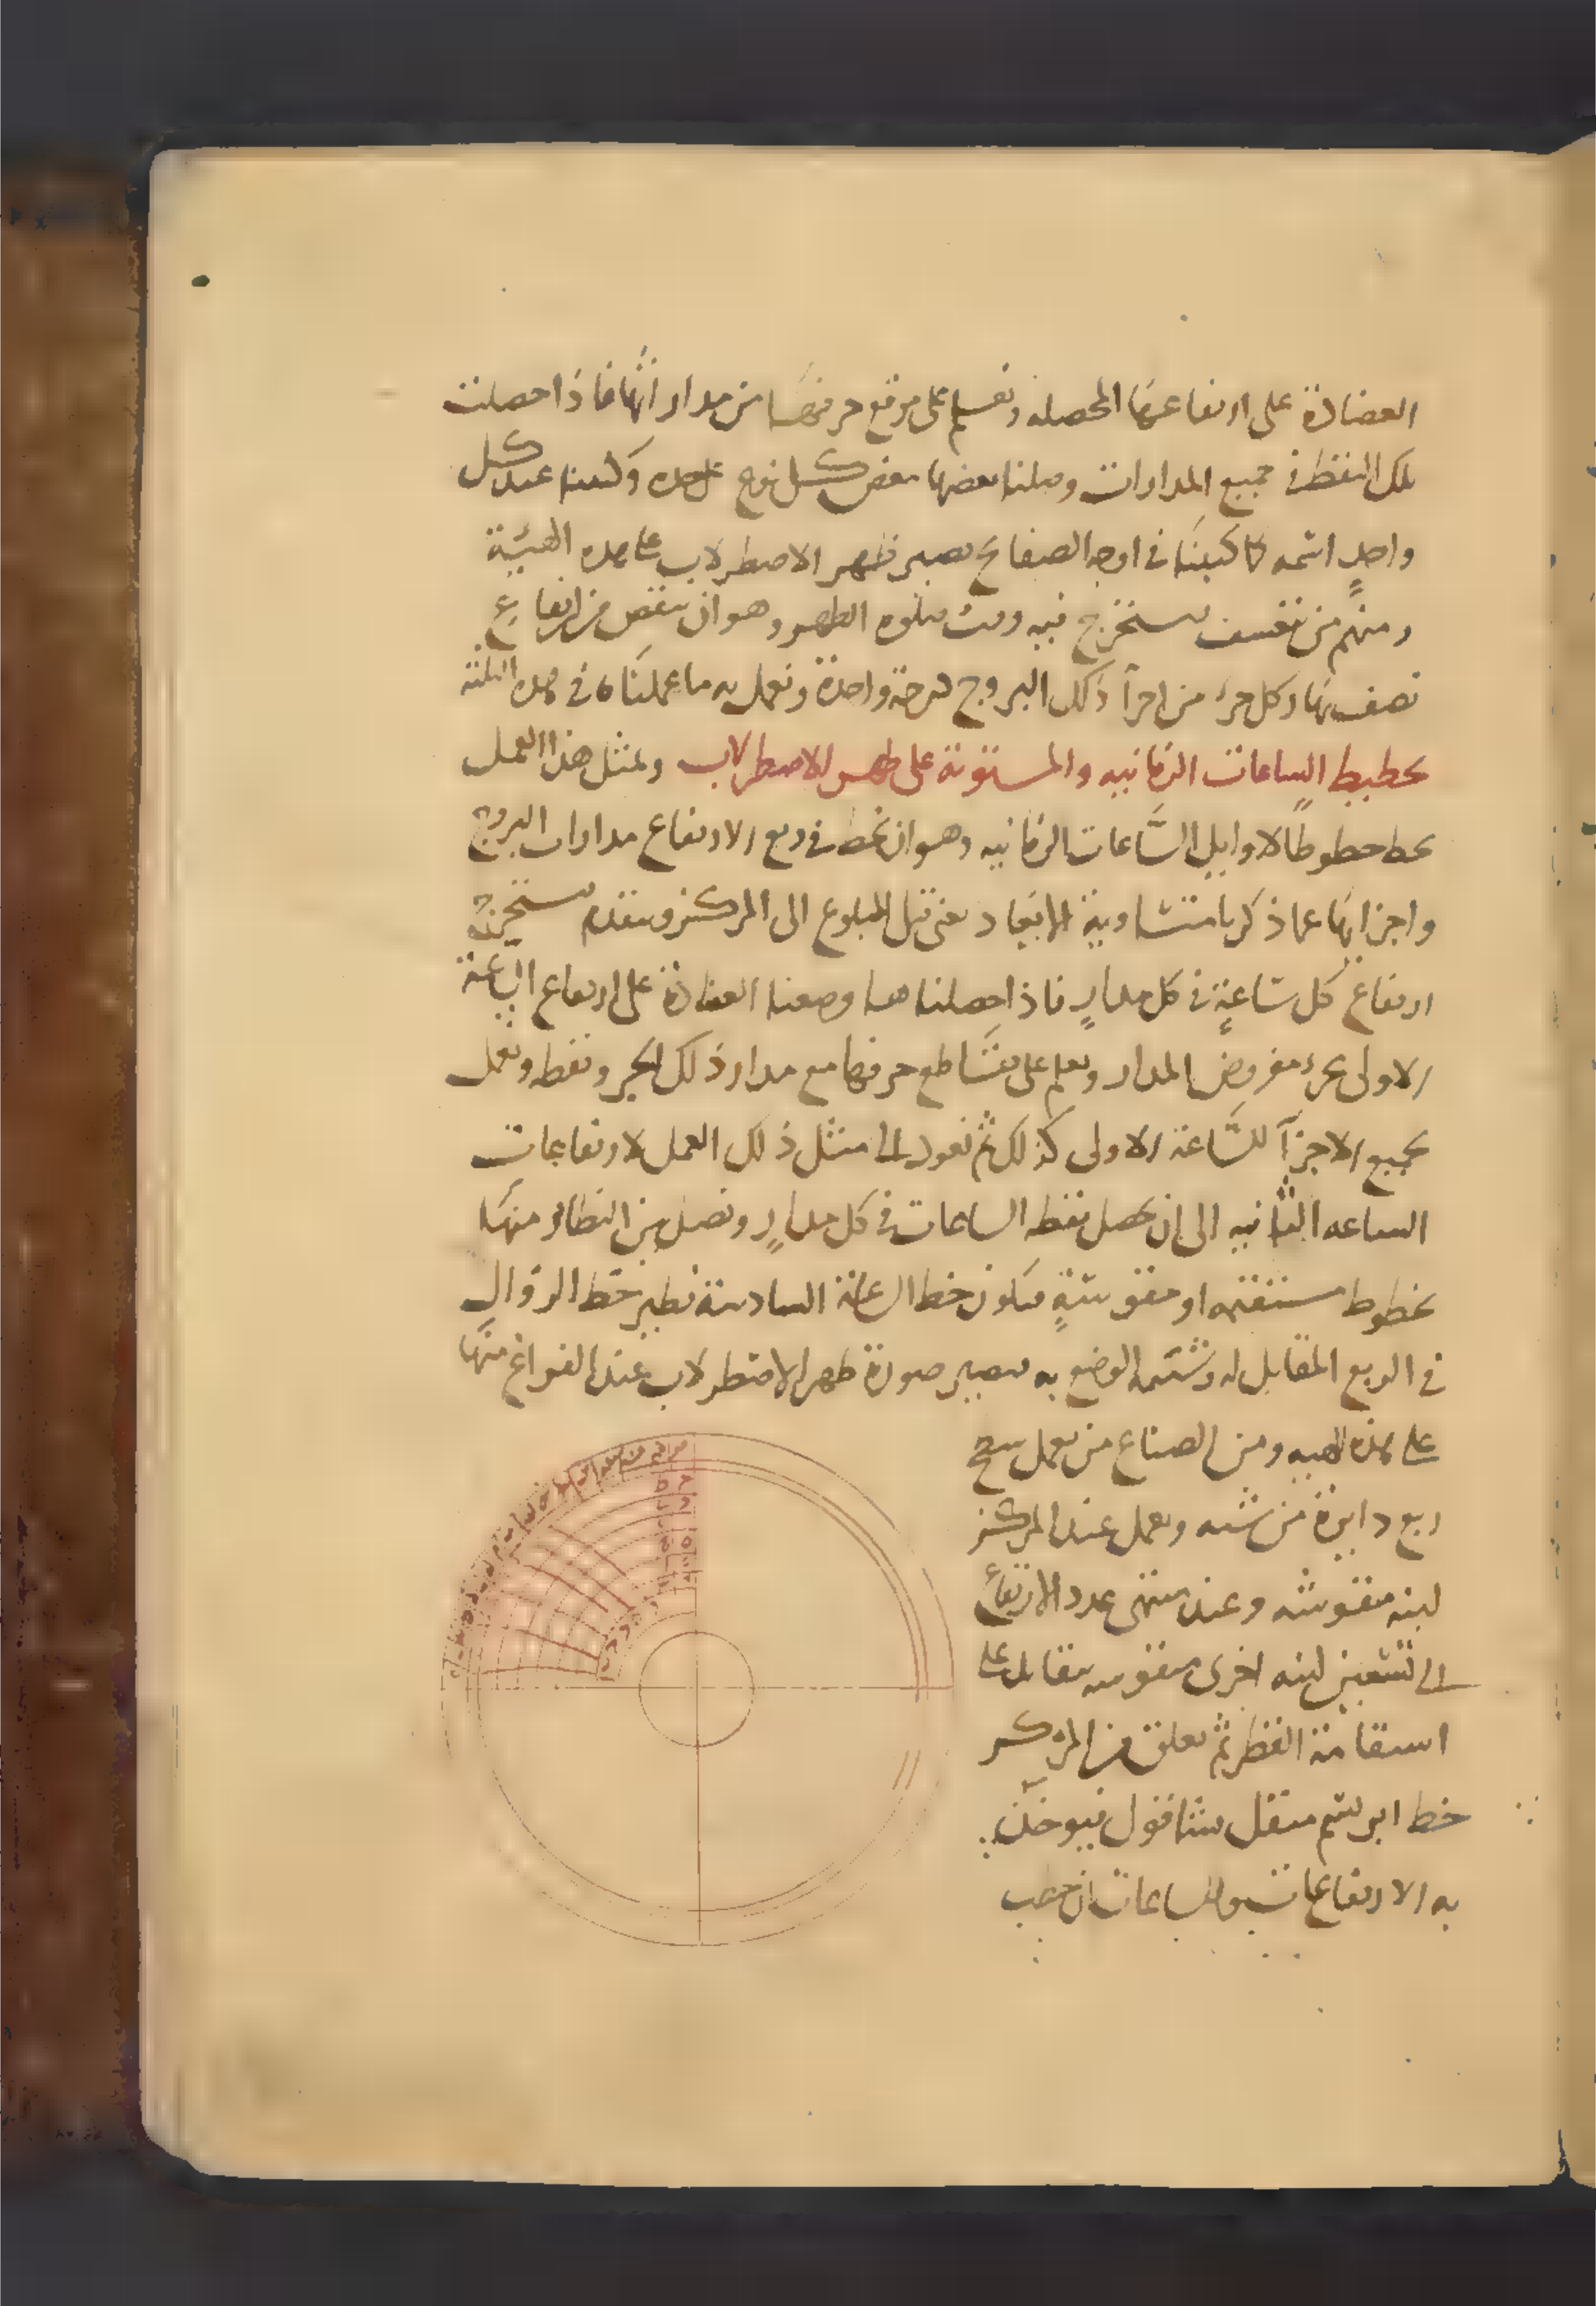 العضادة على ارتفاعها المحصله ونعلم على موقع حرفها من مدار اتها فاذا حصلت
تلك النقط في جميع المدارات وصلنا بعضها ببعض كل نوع على حده وكتبنا عند كل
واحدٍ اسمه كما كتبنا في اوجه الصفايح يصير ظهر الاصطرلاب على هذه الهيئة
ومنهم من يستخرج فيه وهو ان ينقص من ارتفاع
نصف نهار كل جزء من اجزآ ذلك البروج درجة واحدة ونعمل به ما عملناه في هذه الثلثة
تخطيط الساعات الزمانيه والمستوية على ظهر الاصطرلاب ولمثل هذا العمل
نخط خطوطًا لاوايل السَّاعات الزمانيه وهو ان نخط في ربع الارتفاع مدارات البروج
واجزايها كما ذكرنا متساوية الابعاد حتى قبل البلوغ الى المركز ونتقدم نستخرج
ارتفاع كل ساعةٍ في كل مدارٍ فاذا حصلناها وضعنا العضادة على ارتفاع الساعة
الاولى بجزء مفروض المدار ونعلم على تقاطع حرفها مع مدار ذلك الجزو نقطه ونعمل
بجميع الاجزآ للسَّاعة الاولى كذلك ثم نعود الى مثل ذلك العمل لارتفاعات
الساعه الثانيه الى ان تحصل نقط الساعات في كل مدارٍ ونصل بين النظاير منها
بخطوط مستقيمه او مقوسةٍ فيكون خط الساعة السادسة نظير خط الزوال
في الربع المقابل له الوضع به يصير صورة ظهر الاصطرلاب عند الفراغ منها
على هذه الهييه ومن الصناع من يعمل
ربع دايرة من شبه ويعمل عند المركز
لبنه مثقوبه وعند منتهى عدد الارتفاع
الى تسعين لبنه اخرى مثقوبه تقابل على
استقامة القطر ثم يعلق من المركز
خط ابريسم مثقل بشاقول فيوخذ
به الارتفاعات والساعات